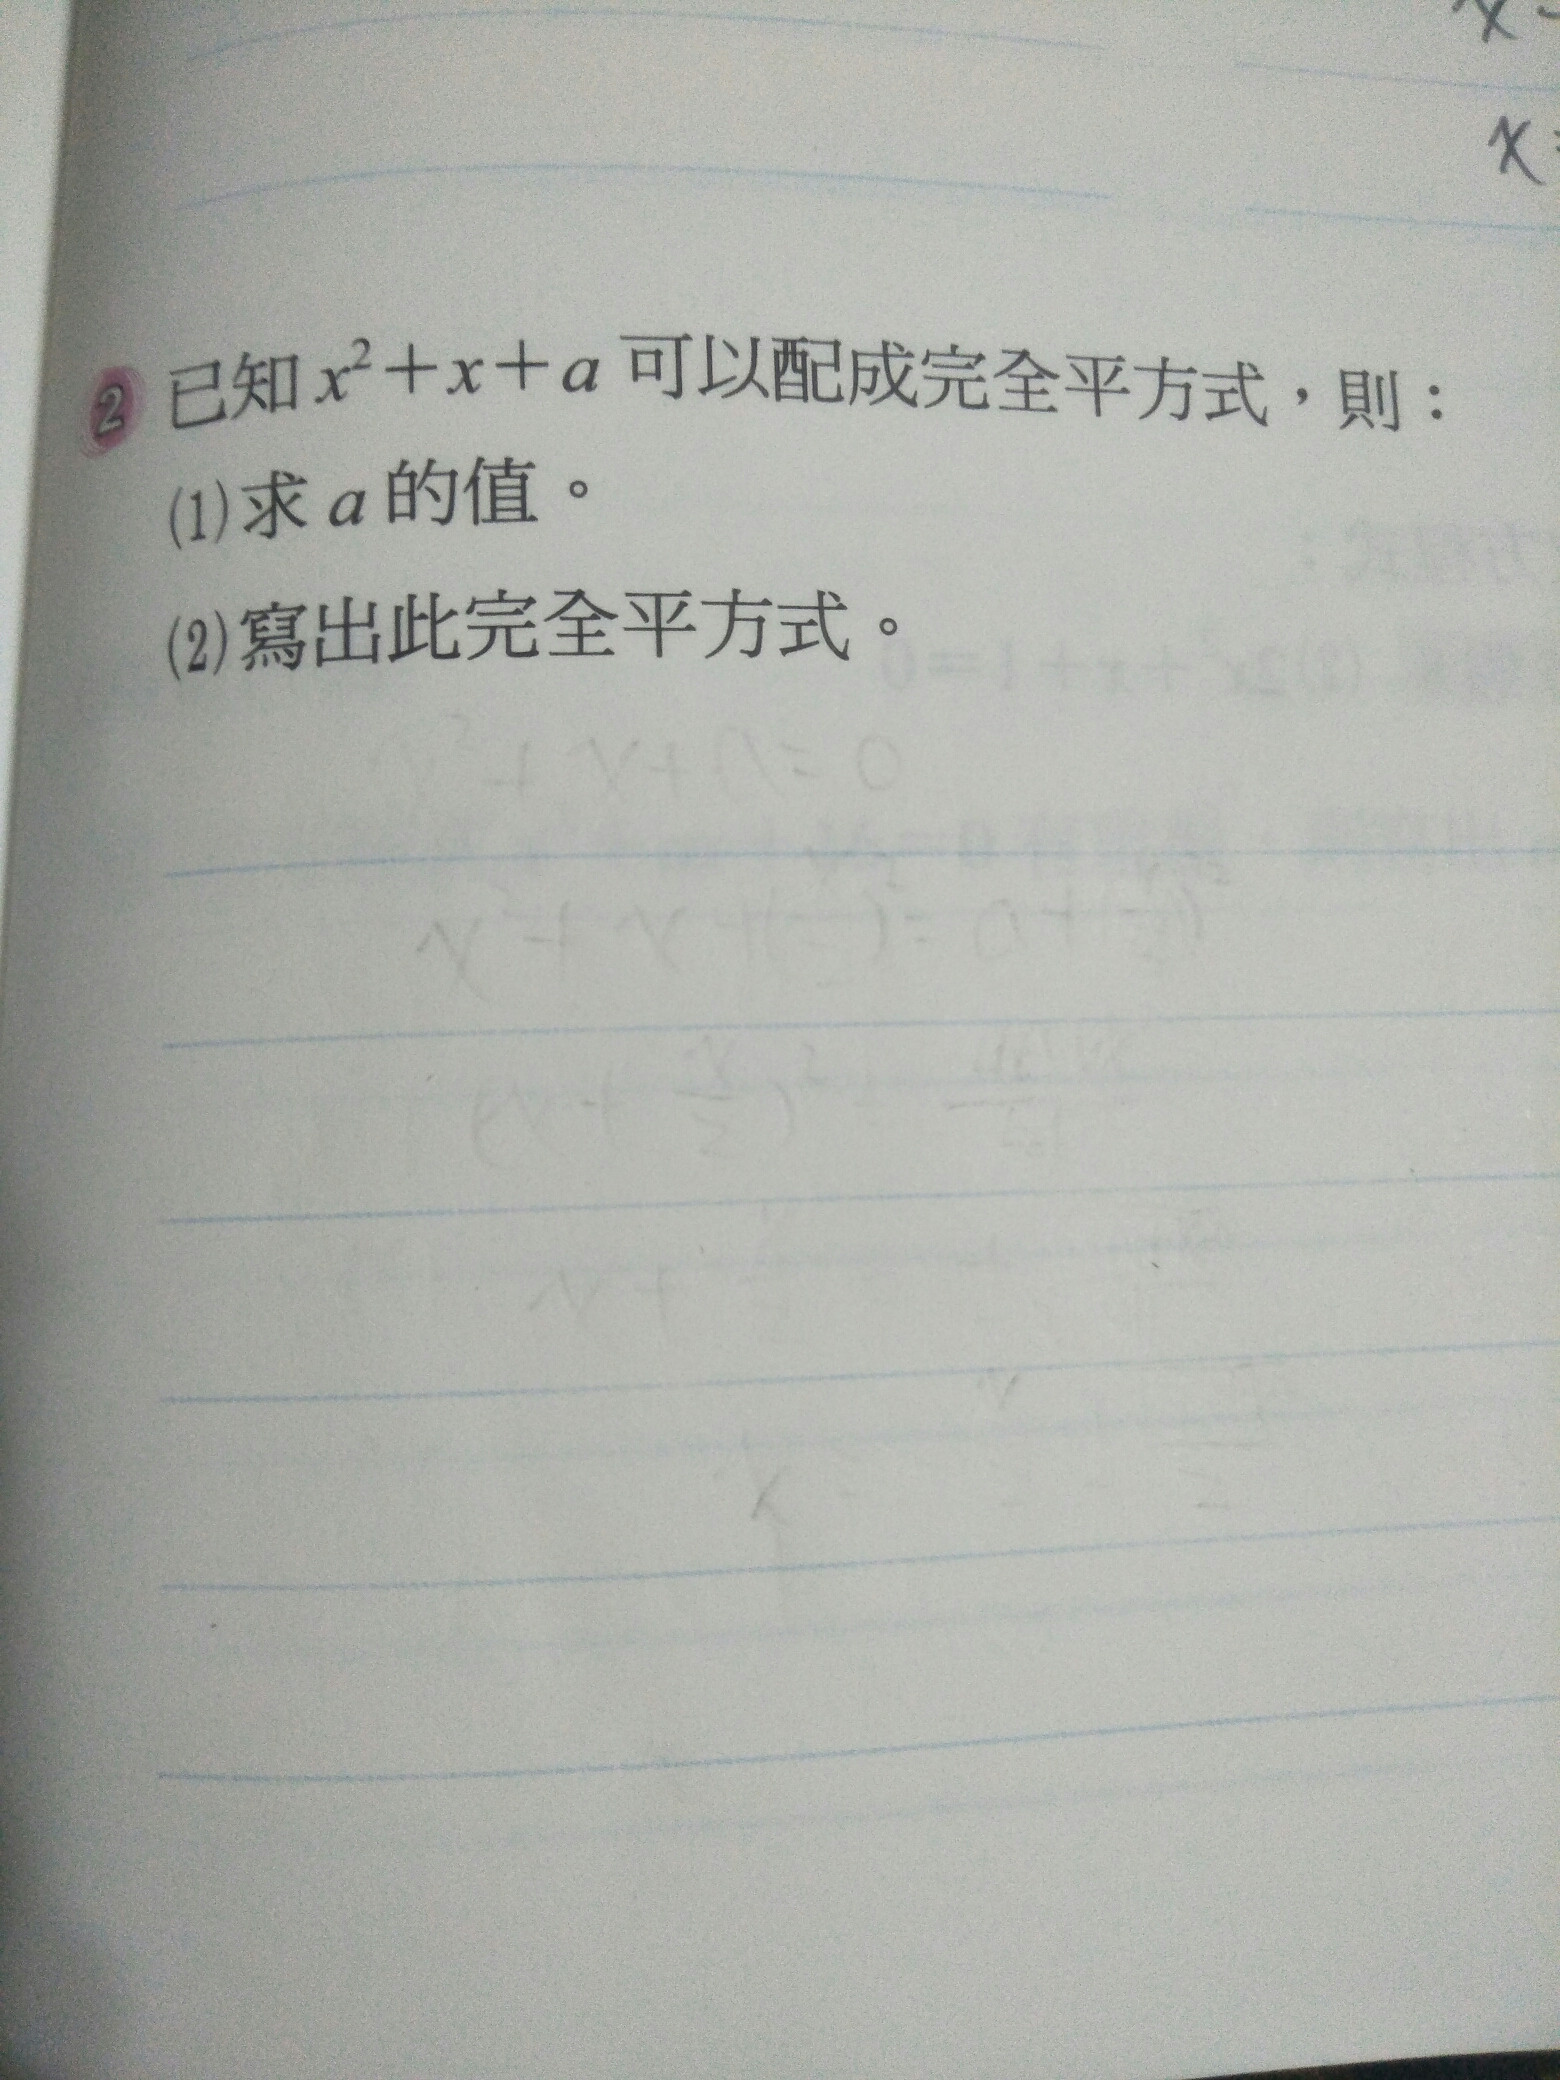 x
x
2 已知 x²+x+a 可以配成完全平方式，則：
(1)求 a 的值。
(2)寫出此完全平方式。